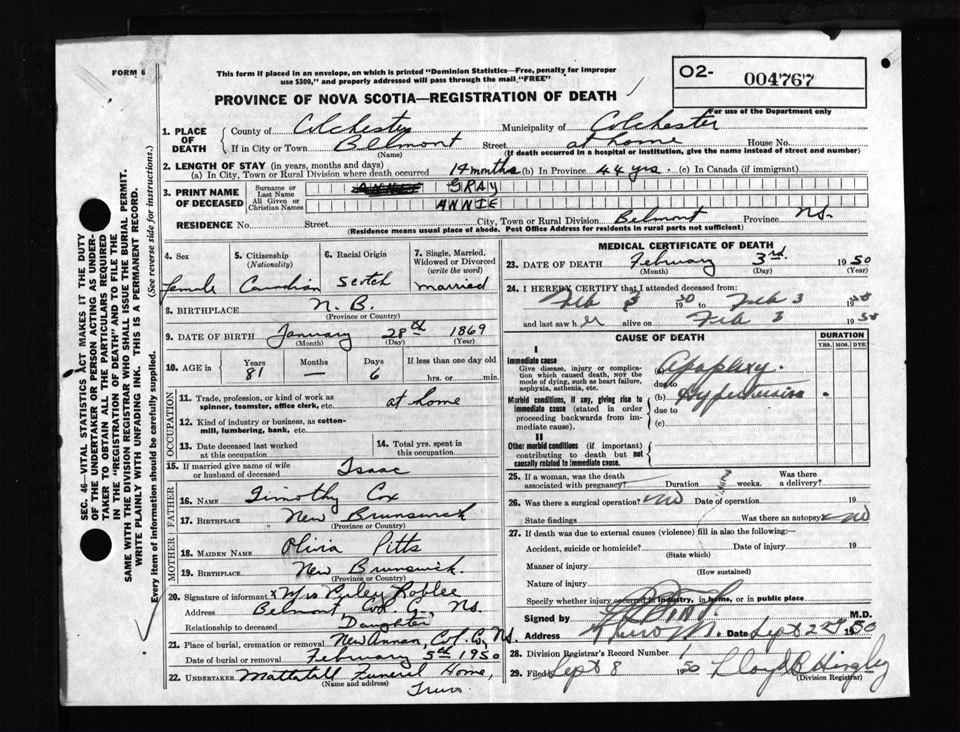 FORM 6
This form if placed in an envelope, on which is printed "Dominion Statistics—Free, penalty for improper
use $300," and properly addressed will pass through the mail "FREE"
PROVINCE OF NOVA SCOTIA—REGISTRATION OF DEATH
O2- 004767
For use of the Department only
SEC. 46—VITAL STATISTICS ACT MAKES IT THE DUTY
OF THE UNDERTAKER OR PERSON ACTING AS UNDER-
TAKER TO OBTAIN ALL THE PARTICULARS REQUIRED
IN THE "REGISTRATION OF DEATH" AND TO FILE THE
SAME WITH THE DIVISION REGISTRAR WHO SHALL ISSUE THE BURIAL PERMIT.
WRITE PLAINLY WITH UNFADING INK. THIS IS A PERMANENT RECORD.
Every item of information should be carefully supplied. (See reverse side for instructions.)
1. PLACE OF DEATH
County of Colchester Municipality of Colchester
If in City or Town Belmont Street at home House No.
(Name) (If death occurred in a hospital or institution, give the name instead of street and number)
2. LENGTH OF STAY (in years, months and days)
(a) In City, Town or Rural Division where death occurred 14 months (b) In Province 44 yrs. (c) In Canada (if immigrant)
3. PRINT NAME OF DECEASED
Surname or Last Name ANNIE GRAY
All Given or Christian Names ANNIE
RESIDENCE No. Street City, Town or Rural Division Belmont Province N.S.
(Residence means usual place of abode. Post Office Address for residents in rural parts not sufficient)
4. Sex female
5. Citizenship (Nationality) Canadian
6. Racial Origin Scotch
7. Single, Married, Widowed or Divorced (write the word) married
8. BIRTHPLACE N.B.
(Province or Country)
9. DATE OF BIRTH January 28th 1869
(Month) (Day) (Year)
10. AGE in Years 81 Months — Days 6 If less than one day old hrs. or min.
OCCUPATION
11. Trade, profession or kind of work as spinner, teamster, office clerk, etc. at home
12. Kind of industry or business, as cotton-mill, lumbering, bank, etc.
13. Date deceased last worked at this occupation
14. Total yrs. spent in this occupation
15. If married give name of wife or husband of deceased Isaac
FATHER
16. NAME Timothy Cox
17. BIRTHPLACE New Brunswick
(Province or Country)
MOTHER
18. MAIDEN NAME Olivia Pitts
19. BIRTHPLACE New Brunswick.
(Province or Country)
20. Signature of informant x Mrs Roblee
Address Belmont, Col. Co., N.s.
Relationship to deceased Daughter
21. Place of burial, cremation or removal New Annan, Col. Co, N.s.
Date of burial or removal February 5th 1950
22. UNDERTAKER Mattatall Funeral Home, Truro
(Name and address)
MEDICAL CERTIFICATE OF DEATH
23. DATE OF DEATH February 3rd. 1950
(Month) (Day) (Year)
24. I HEREBY CERTIFY that I attended deceased from:
Feb 3 1950 to Feb 3 1950
and last saw her alive on Feb 3 1950
CAUSE OF DEATH DURATION
YRS. MOS. DYS.
I
Immediate cause
Give disease, injury or complication which caused death, NOT the mode of dying, such as heart failure, asphyxia, asthenia, etc.
(a) Apoplexy
due to
Morbid conditions, if any, giving rise to immediate cause (stated in order proceeding backwards from immediate cause).
(b) Hypertension
due to
(c)
II
Other morbid conditions (if important) contributing to death but not causally related to immediate cause.
25. If a woman, was the death associated with pregnancy? Duration weeks. Was there a delivery?
26. Was there a surgical operation? no Date of operation 19
State findings Was there an autopsy no
27. If death was due to external causes (violence) fill in also the following:
Accident, suicide or homicide? Date of injury 19
(State which)
Manner of injury
(How sustained)
Nature of injury
Specify whether injury occurred in industry, in home, or in public place
Signed by M.D.
Address Truro Date Sept 2nd 1950
28. Division Registrar's Record Number 1
29. Filed Sept 8 1950 Lloyd B Hingley
(Division Registrar)